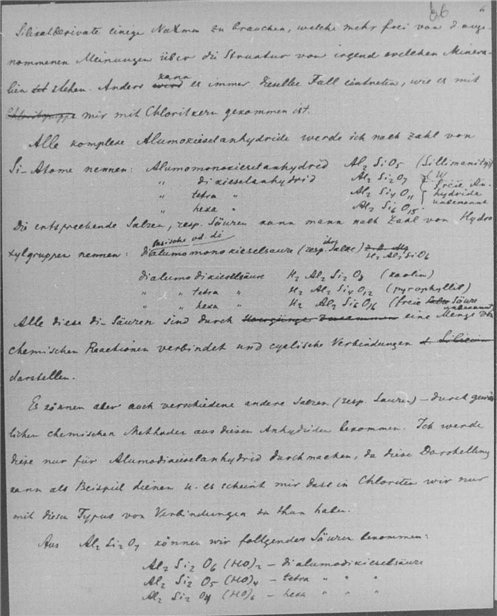 66 6
Silicatderivate einige Nahmen zu brauchen, welche mehr frei von d ange-
nommenen Meinungen über die Struktur von irgend welchen Minera-
lien stehen. Anders kann es immer dieselbe Fall eintreten, wie es mit
mir mit Chloritkern gekommen ist.
Alle komplexe Alumokieselanhydride werde ich nach Zahl von
Si-Atome nennen: Alumomonokieselanhydrid Al₂ SiO₅ (Sillimanit
" dikieselanhydrid Al₂ Si₂ O₇
" tetra " Al₂ Si₄ O₁₁ freie An-
" hexa " Al₂ Si₆ O₁₅ hydride unbekannt
Die entsprechende Salzen, resp. Säuren kann mann nach Zahl von Hydro
xylgruppen nennen: dialumomonokieselsäure (resp. Salze) H₂ Al₂SiO₆
basische od. di
dialumodikieselsäure H₂ Al₂ Si₂ O₈ (kaolin)
" " tetra " H₂ Al₂ Si₄ O₁₂ (pyrophyllit)
" " hexa " H₂ Al₂ Si₆ O₁₆ (freie Säure unbekannt)
Alle diese di-Säuren sind durch eine Menge von
chemischen Reactionen verbindet und cyclische Verbindungen
darstellen.
Es können aber auch verschiedene andere Salzen (resp. Säuren) – durch gewöhn
lichen chemischen Methoden aus diesen Anhydriden bekommen. Ich werde
diese nur für Alumodikieselanhydrid durchmachen, da diese Darstellung
kann als Beispiel dienen u. es scheint mir dass in Chloriten wir nur
mit diesen Typus von Verbindungen zu thun haben.
Aus Al₂ Si₂ O₇ können wir follgenden Säuren bekommen:
Al₂ Si₂ O₆ (HO)₂ – dialumodikieselsäure
Al₂ Si₂ O₅ (HO)₄ – tetra " " "
Al₂ Si₂ O₄ (HO)₆ – hexa " " "